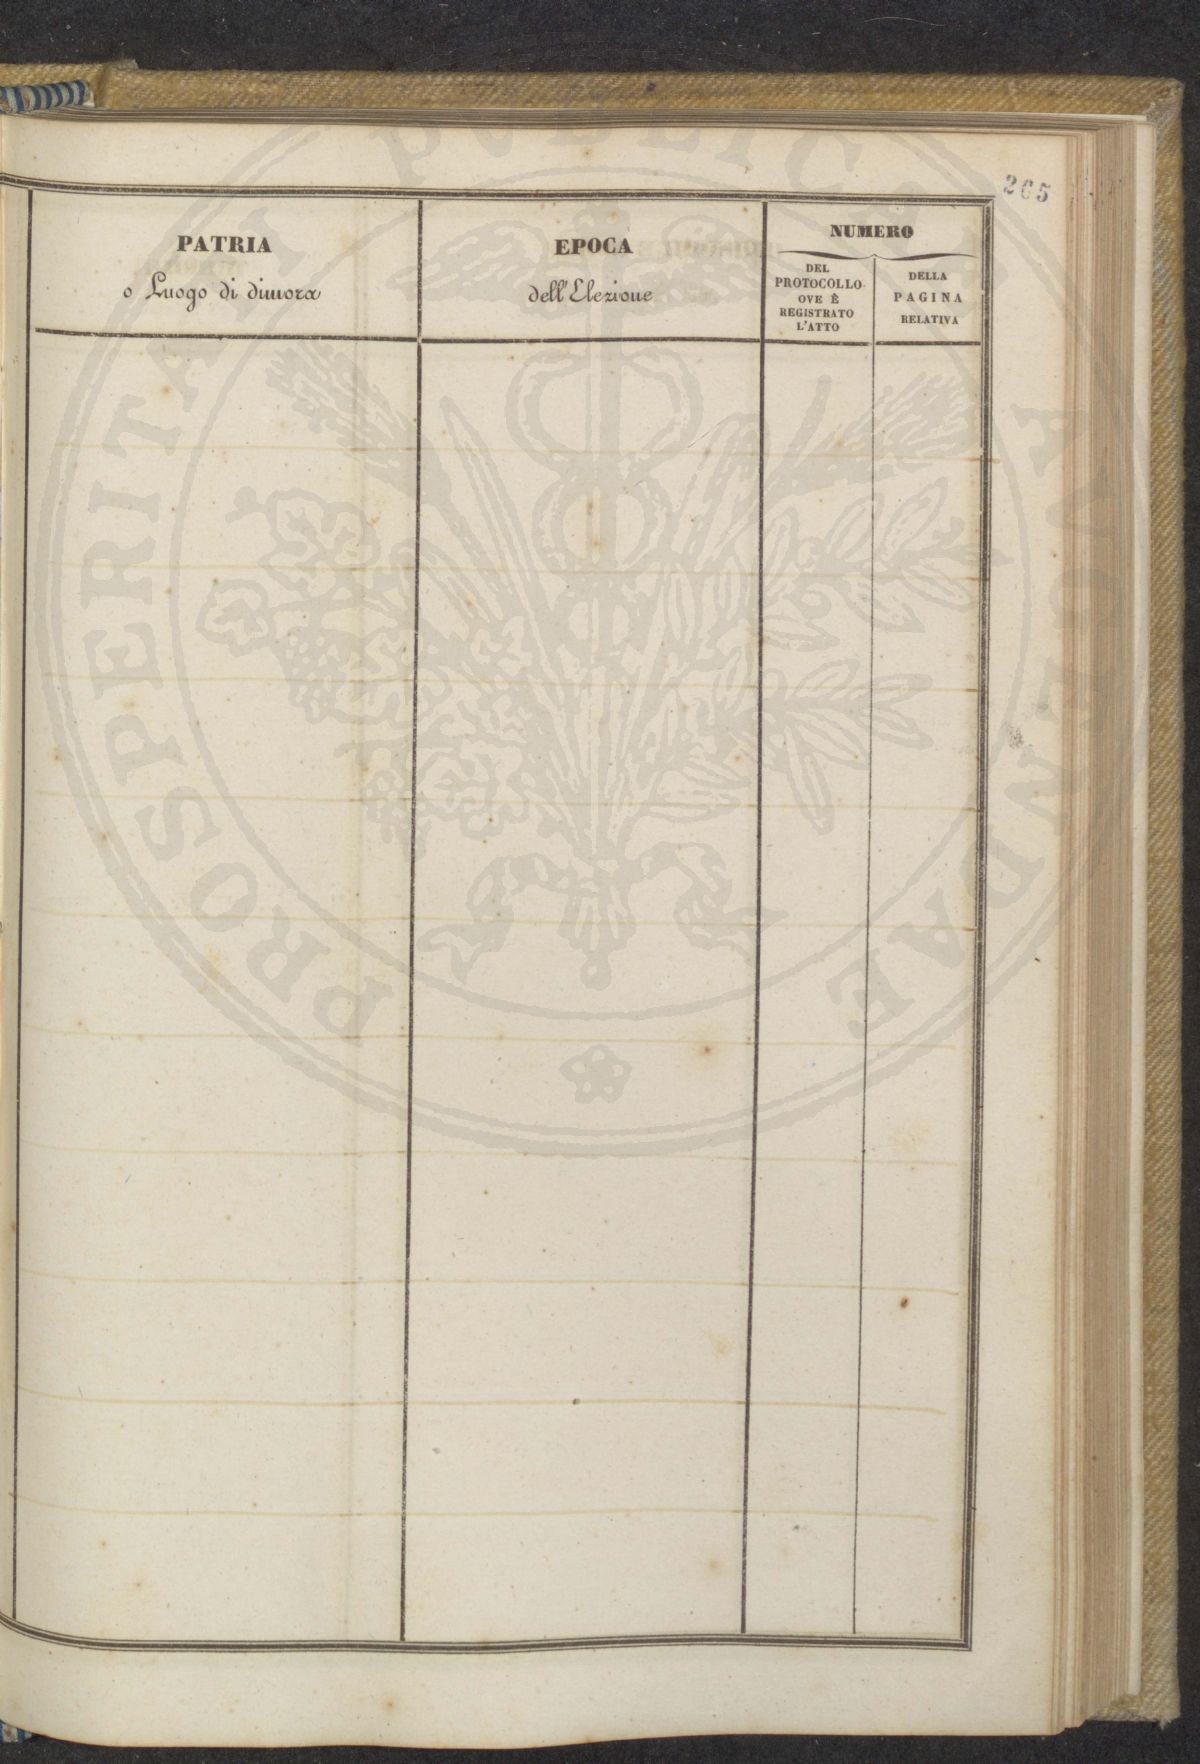 265
PATRIA
o Luogo di dimora
EPOCA
dell'Elezione
NUMERO
DEL
PROTOCOLLO
OVE È
REGISTRATO
L'ATTO
DELLA
PAGINA
RELATIVA
PROSPERITATI PUBLICAE AUGENDAE